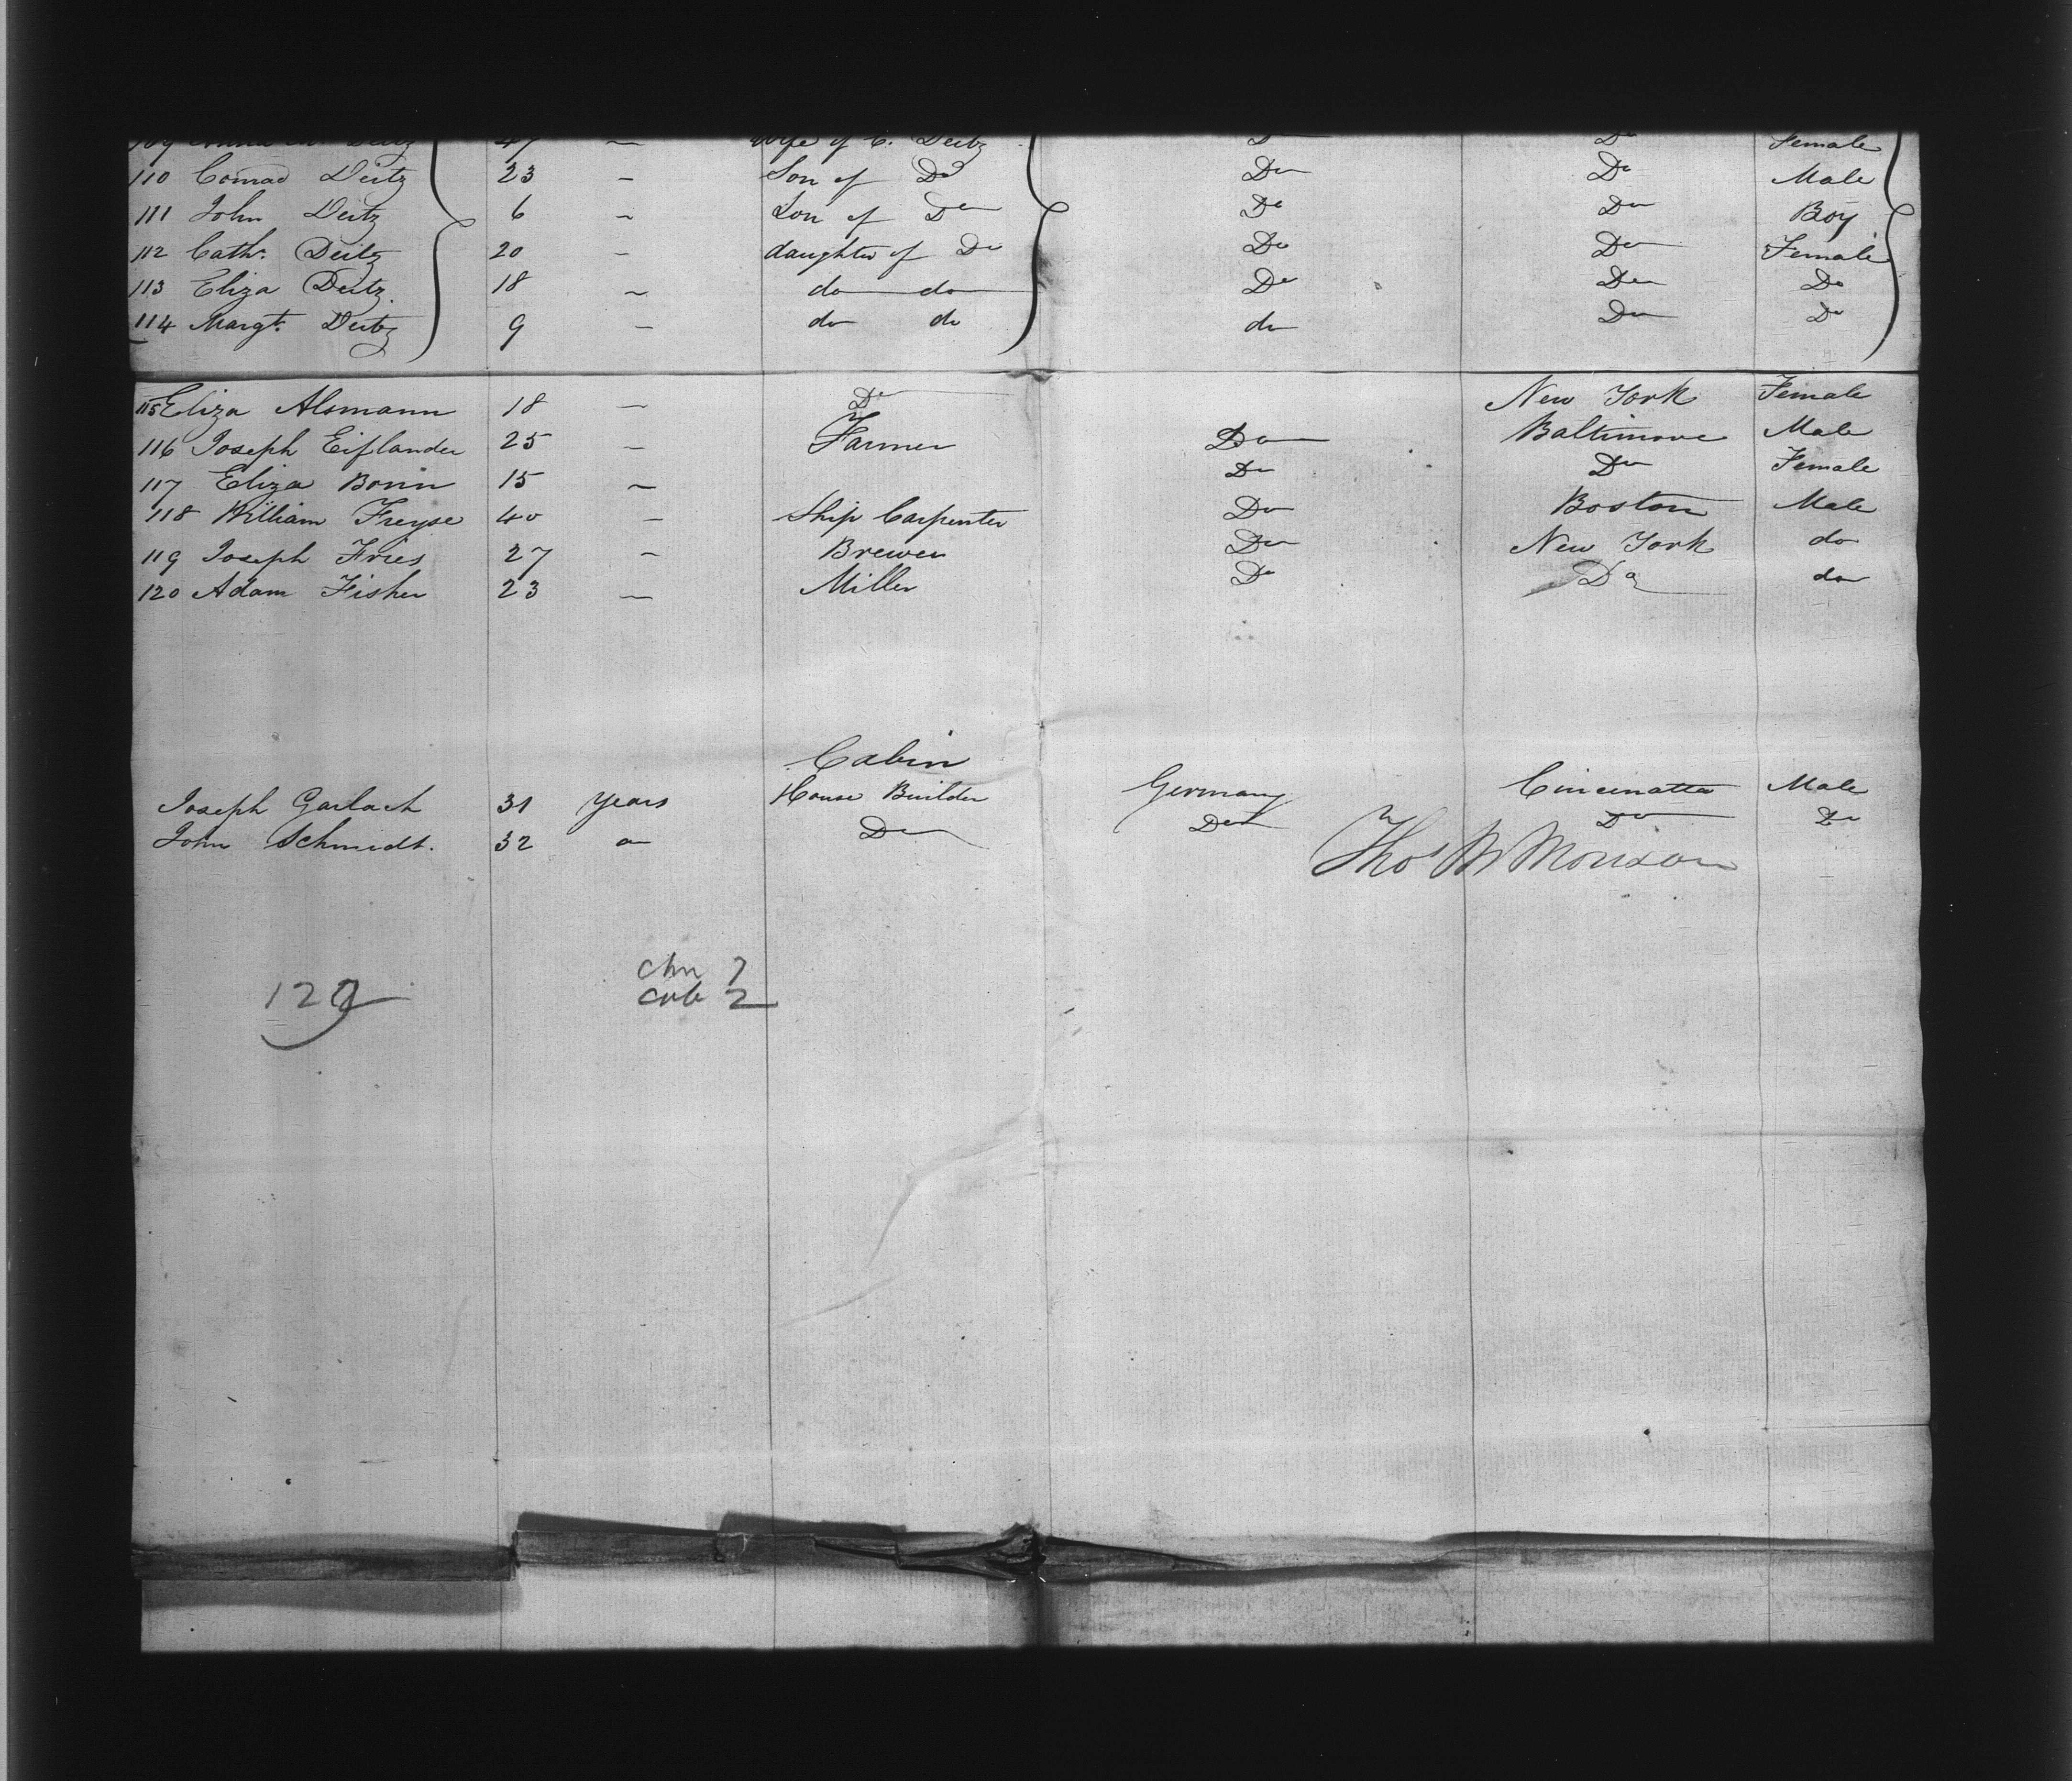 109 Anna M. Deitz 47 — Wife of C. Deitz Do Do Female
110 Conrad Deitz 23 — Son of Do Do Do Male
111 John Deitz 6 — Son of Do Do Do Boy
112 Cath. Deitz 20 — daughter of Do Do Do Female
113 Eliza Deitz. 18 — do do Do Do Do
114 Margt. Deitz 9 — do do do Do Do
115 Eliza Alsmann 18 — Do New York Female
116 Joseph Eiflander 25 — Farmer Do Baltimore Male
117 Eliza Bonin 15 — Do Do Female
118 William Freyse 40 — Ship Carpenter Do Boston Male
119 Joseph Fries 27 — Brewer Do New York do
120 Adam Fisher 23 — Miller Do Do do
Cabin
Joseph Garlach 31 Years House Builder Germany Cincinatta Male
John Schmidt. 32 Do Do Do Do
Thos
chn 7
120
cab 2